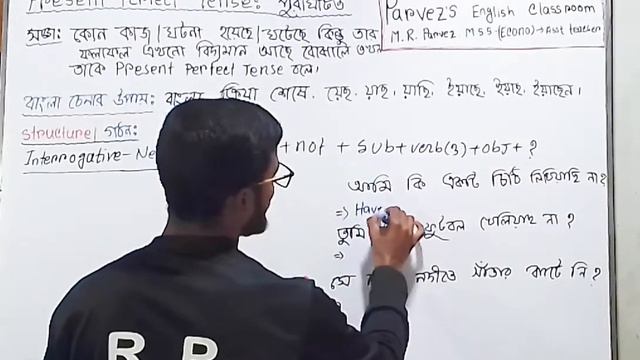 Present Perfect Tense: পুরাঘটিত
Parvez's English Classroom
M.R. Parvez M.S.S (Econo) → Asst teacher
সংজ্ঞা: কোন কাজ/ঘটনা হয়েছে/ঘটেছে কিন্তু তার
ফলাফল এখনো বিদ্যমান আছে বোঝালে তখন
তাকে Present Perfect Tense বলে।
বাংলা চেনার উপায়: বাংলায় ক্রিয়া শেষে, য়েছ, য়াছ, য়াছি, ইয়াছে, ইয়াছ, ইয়াছেন।
Structure/গঠন:
Interrogative-Ne + not + Sub+verb(3)+obj+?
আমি কি একটি চিঠি লিখিয়াছি না?
=> Have
তুমি ফুটবল খেলিয়াছ না?
=>
সে নদীতে সাঁতার কাটে নি?
R P